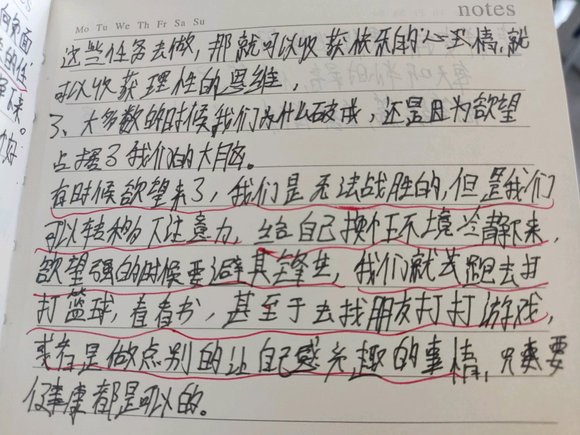 notes
Mo Tu We Th Fr Sa Su
这些任务去做,那就可以收获快乐的心情,就
可以收获理性的思维,
3、大多数的时候我们为什么破戒,还是因为欲望
占据了我们的大脑。
有时候欲望来了,我们是无法战胜的,但是我们
可以转移下注意力,给自己换个环境冷静下来,
欲望强的时候要避其锋芒,我们就去跑去打
打篮球,看看书,甚至于去找朋友打打游戏,
或者是做点别的让自己感兴趣的事情,只要
健康都是可以的。